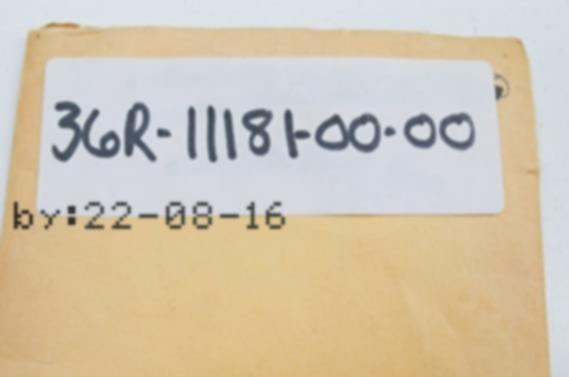 36R-11181-00-00
by:22-08-16